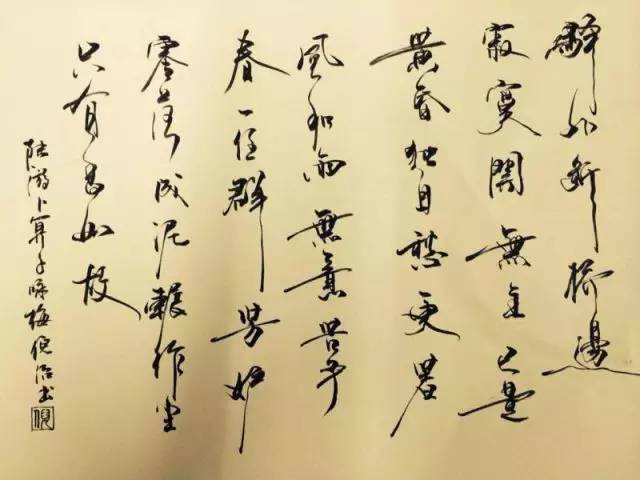 驛外断橋邊
寂寞開無主已是
黄昏独自愁更著
風和雨無意苦争
春一任群芳妒
零落成泥輾作尘
只有香如故
陆游卜算子咏梅倪书
倪